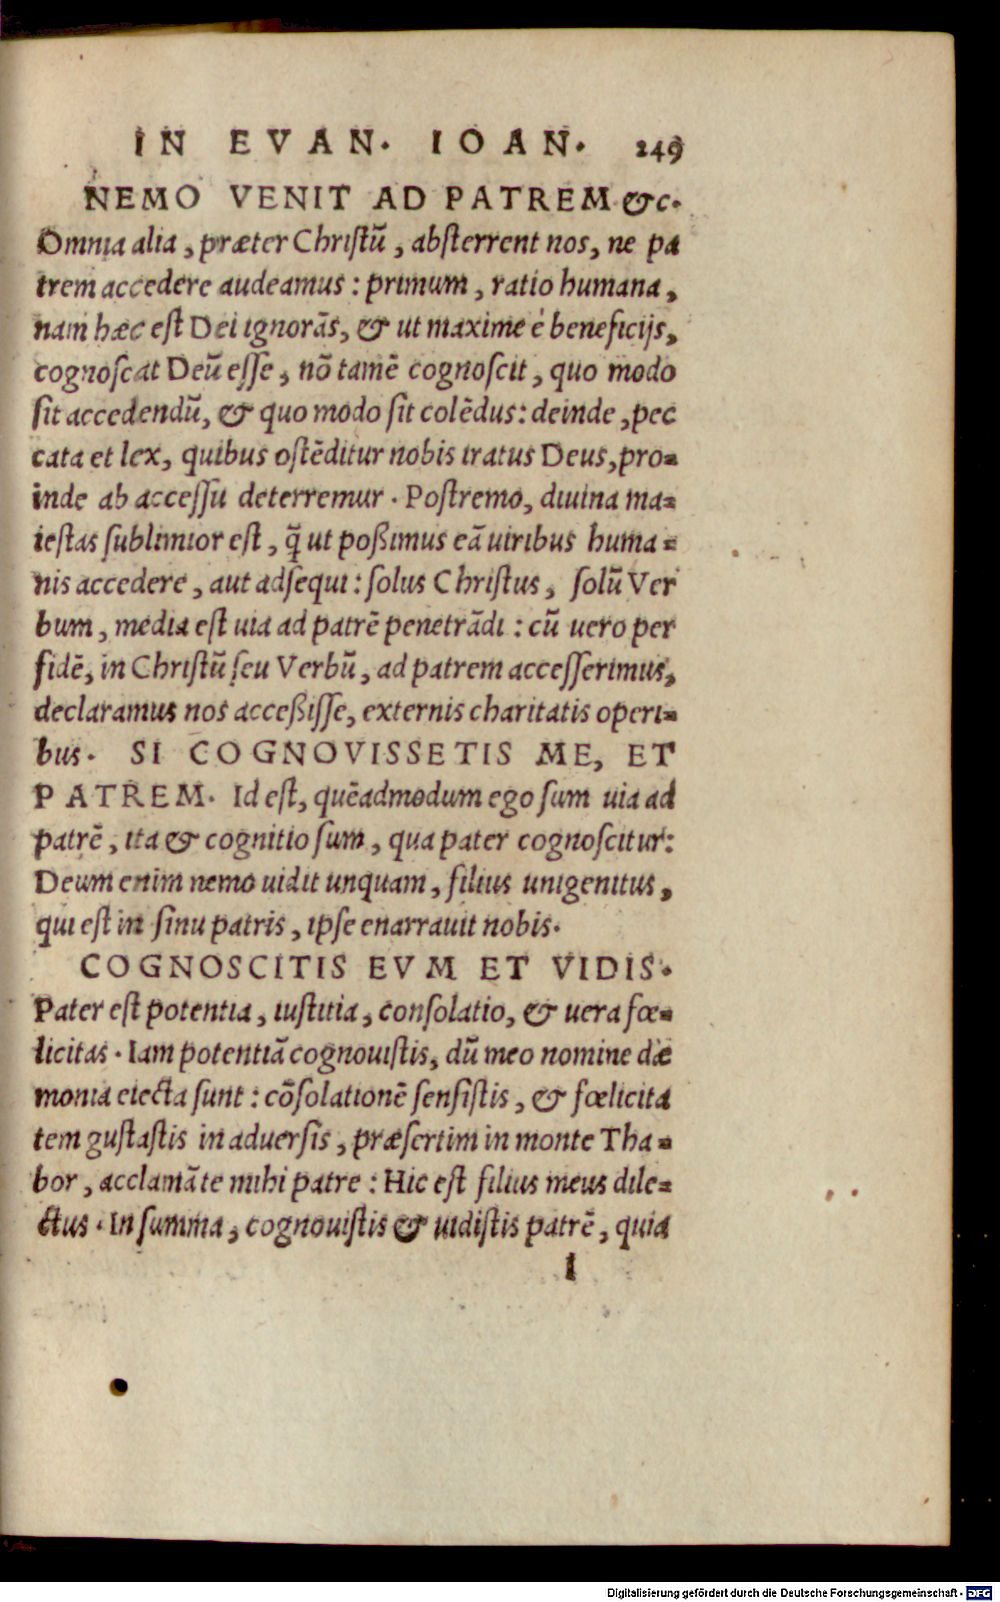 IN EVAN. IOAN. 249
NEMO VENIT AD PATREM &c.
Omnia alia, præter Christũ, absterrent nos, ne pa
trem accedere audeamus: primum, ratio humana,
nam hæc est Dei ignorãs, & ut maxime è beneficijs,
cognoscat Deũ esse, nõ tamẽ cognoscit, quo modo
sit accedendũ, & quo modo sit colẽdus: deinde, pec
cata et lex, quibus ostẽditur nobis iratus Deus, pro-
inde ab accessu deterremur. Postremo, diuina ma-
iestas sublimior est, q̃ ut poßimus eã uiribus huma-
nis accedere, aut adsequi: solus Christus, solũ Ver
bum, media est uia ad patrẽ penetrãdi: cũ uero per
fidẽ, in Christũ seu Verbũ, ad patrem accesserimus,
declaramus nos acceßisse, externis charitatis operi-
bus. SI COGNOVISSETIS ME, ET
PATREM. Id est, quẽadmodum ego sum uia ad
patrẽ, ita & cognitio sum, qua pater cognoscitur:
Deum enim nemo uidit unquam, filius unigenitus,
qui est in sinu patris, ipse enarrauit nobis.
COGNOSCITIS EVM ET VIDIS.
Pater est potentia, iustitia, consolatio, & uera fœ-
licitas. Iam potentiã cognouistis, dũ meo nomine dæ
monia eiecta sunt: cõsolationẽ sensistis, & fœlicita
tem gustastis in aduersis, præsertim in monte Tha-
bor, acclamãte mihi patre: Hic est filius meus dile-
ctus. In summa, cognouistis & uidistis patrẽ, quia
I
Digitalisierung gefördert durch die Deutsche Forschungsgemeinschaft - DFG